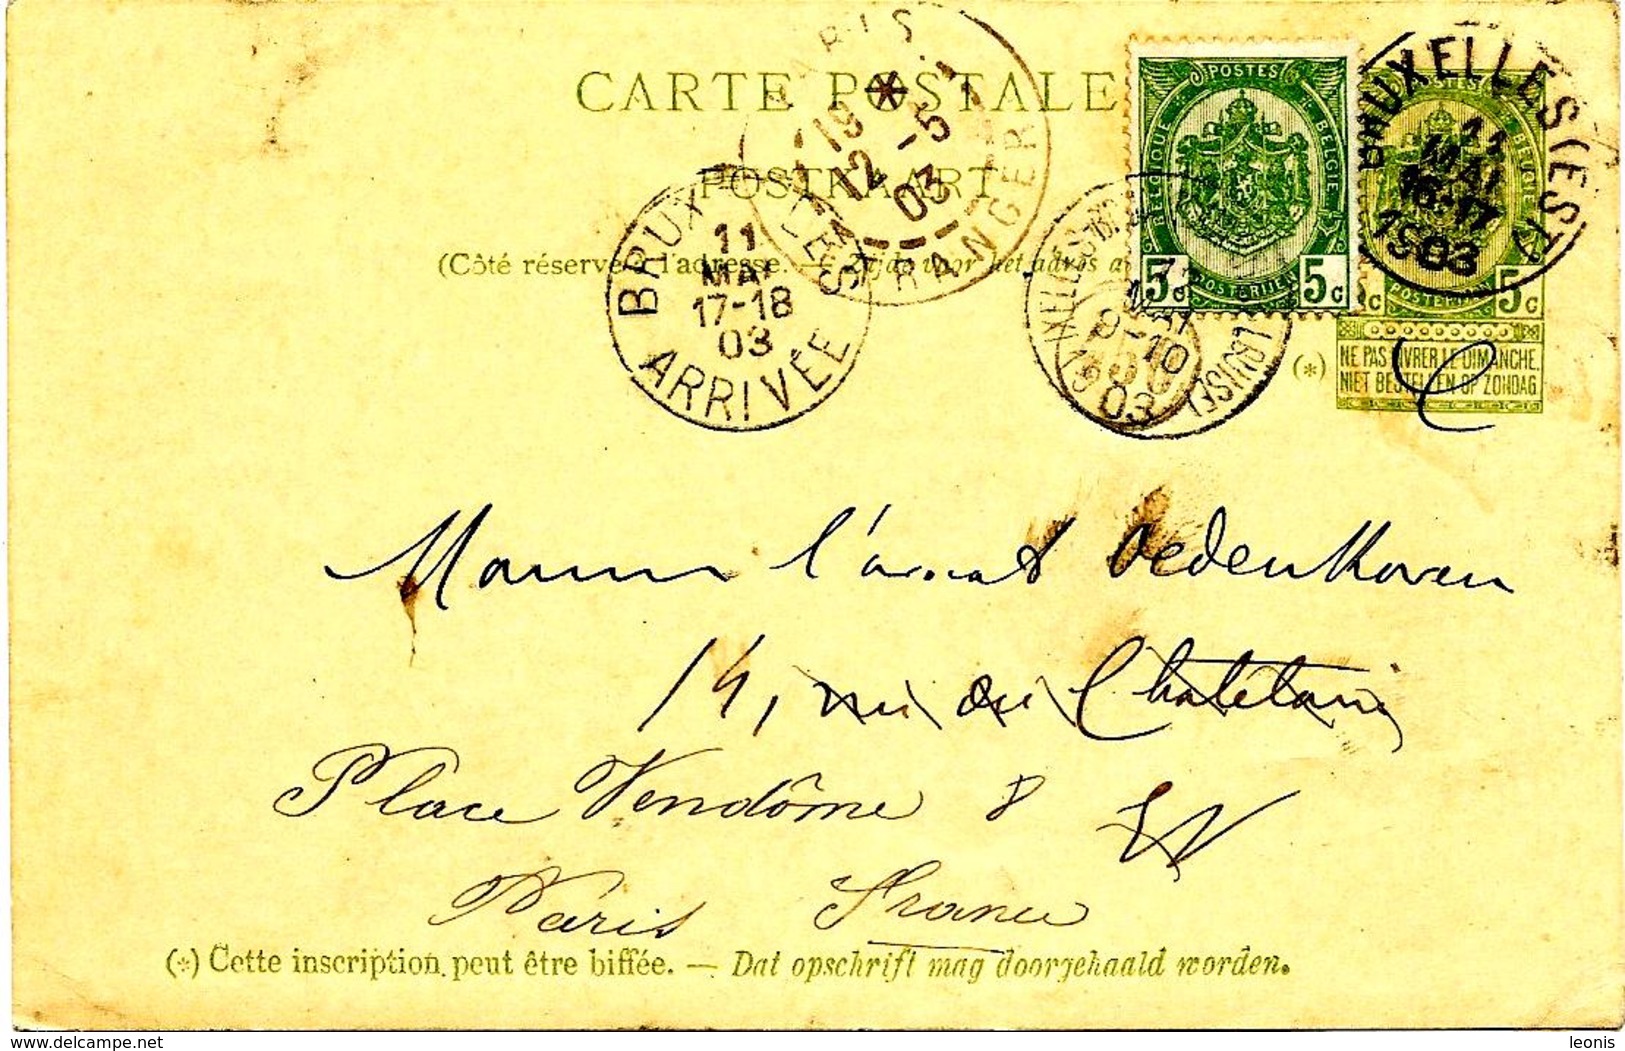 CARTE POSTALE
POSTKAART
(Côté réservé à l'adresse. — Zijde voor het adres
PARIS
19
12 -5
03
ETRANGER
BRUXELLES
11
MAI
17-18
03
ARRIVÉE
IXELLES
12
MAI
9-10
1903
ELSENE (BRUXELLES)
POSTES
BELGIQUE
BELGIE
POSTERIJEN
5c 5c
BRUXELLES (EST)
11
MAI
16-17
1903
5c
(*)
NE PAS LIVRER LE DIMANCHE.
NIET BESTELLEN OP ZONDAG
Monsieur l'avocat Vedenkhoven
14, rue du Chatelain
Place Vendôme 8
EV
Paris France
(*) Cette inscription peut être biffée. — Dat opschrift mag doorgehaald worden.
delcampe.net
leonis